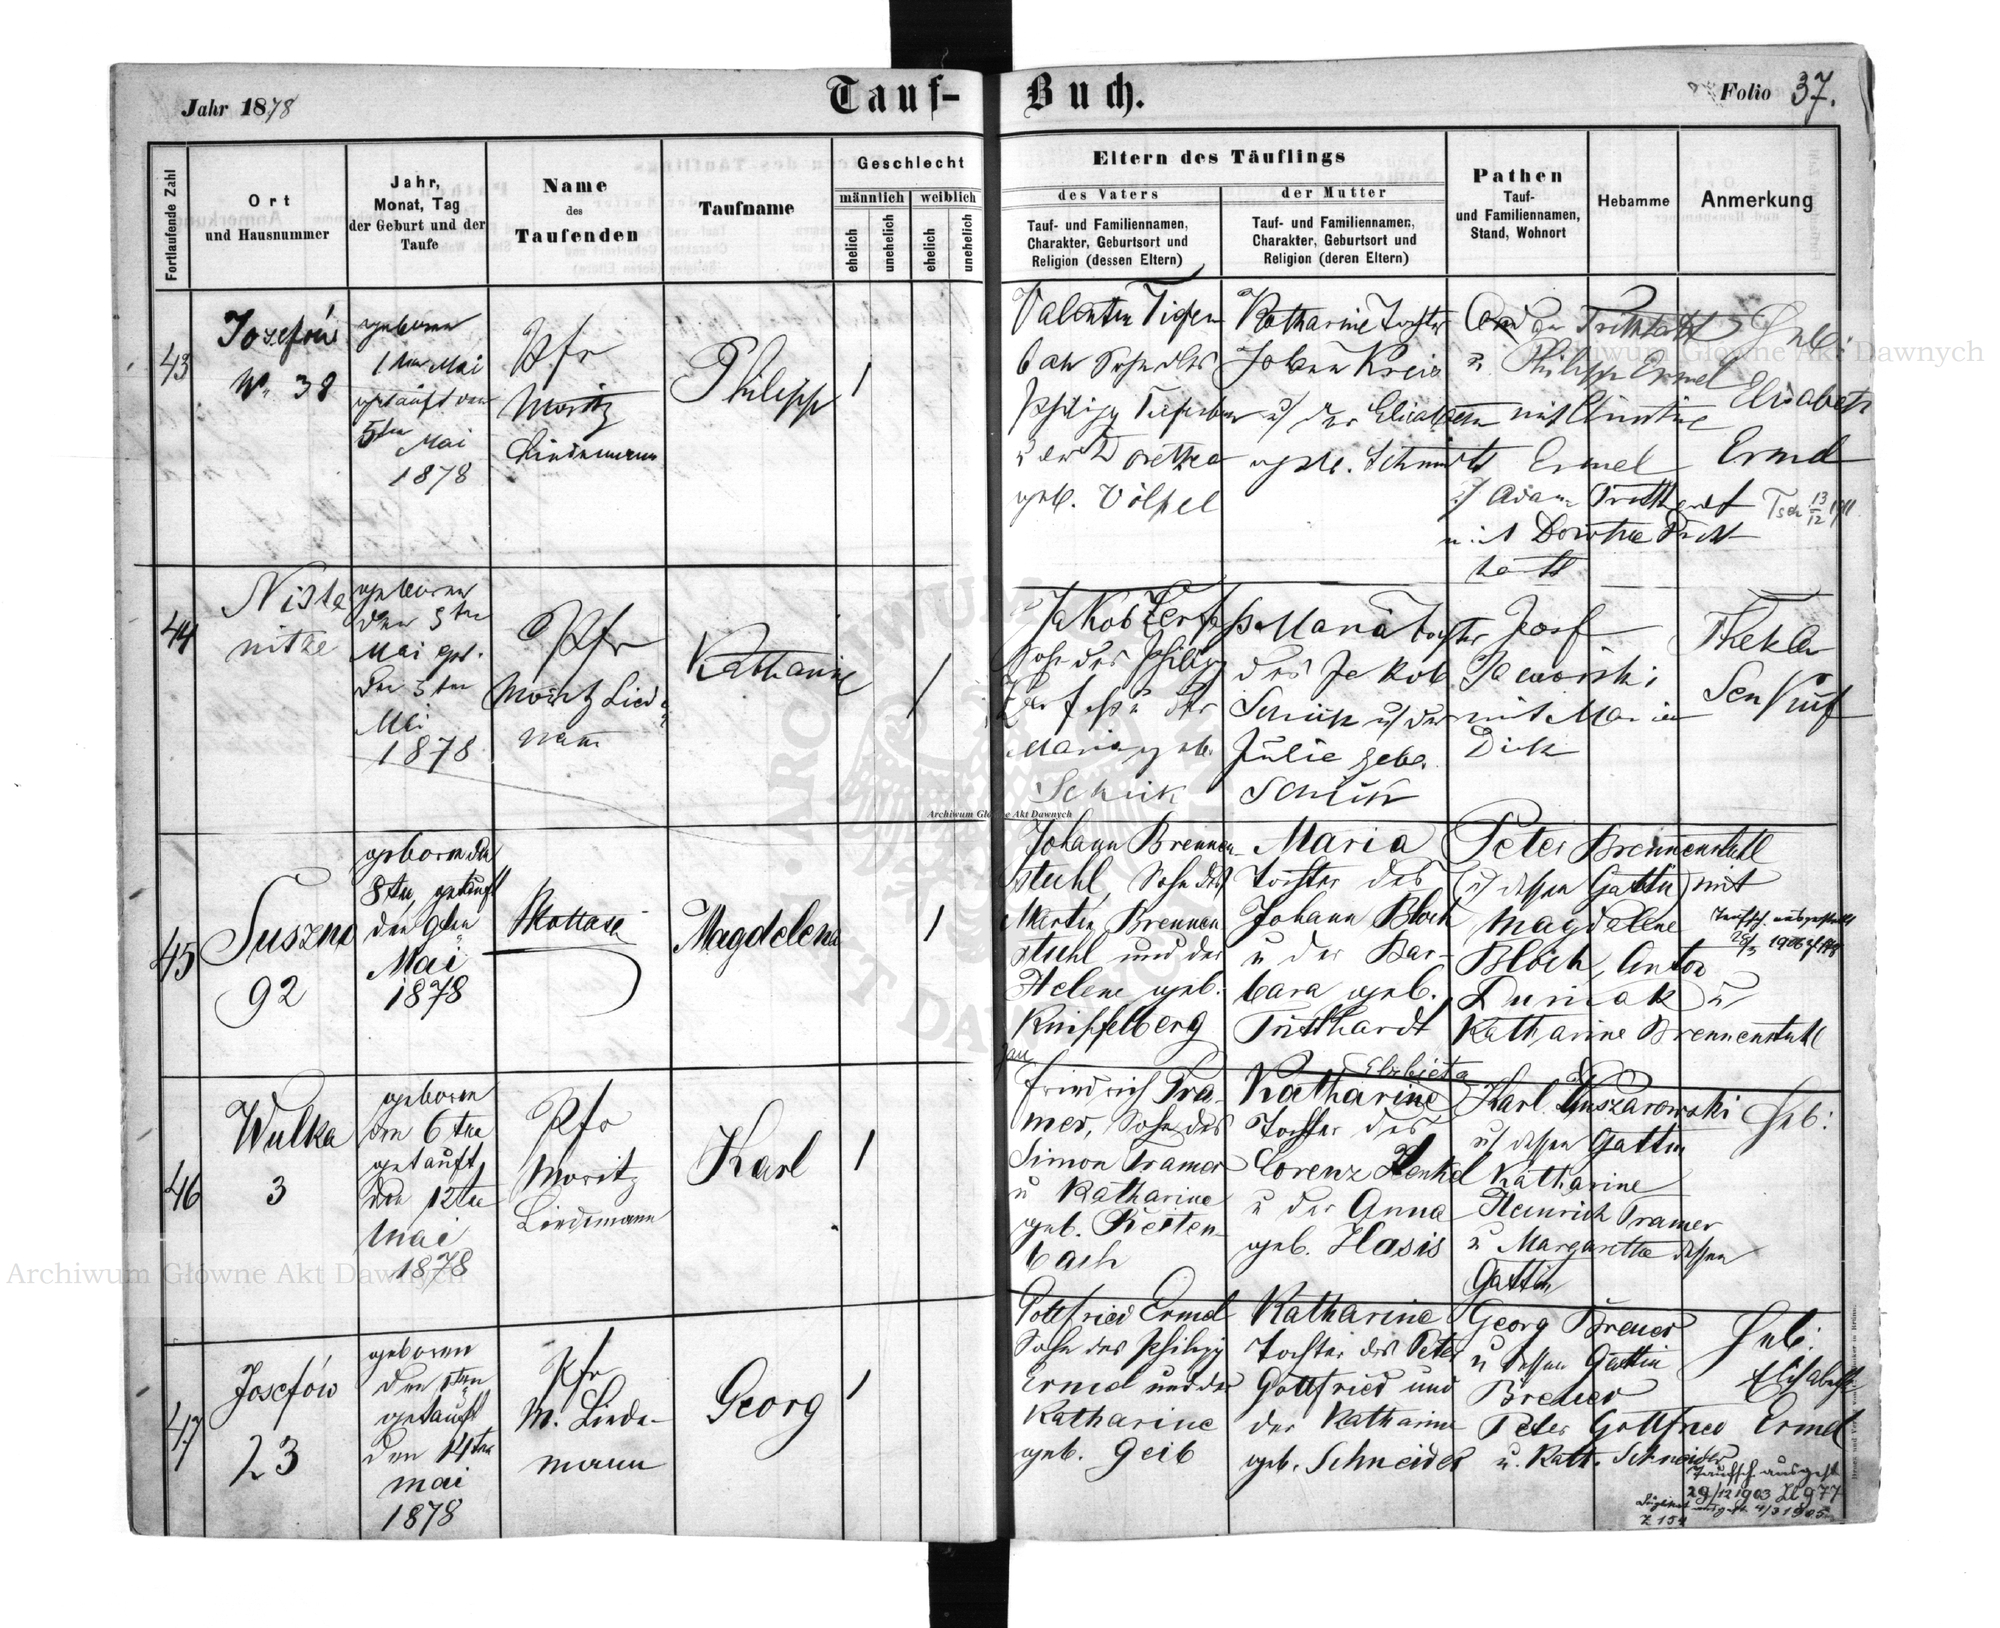 Jahr 1878
Tauf-Buch.
Folio 37.
Fortlaufende Zahl
Ort
und Hausnummer
Jahr,
Monat, Tag
der Geburt und der
Taufe
Name
des
Taufenden
Taufname
Geschlecht
männlich
weiblich
ehelich
unehelich
ehelich
unehelich
Eltern des Täuflings
des Vaters
Tauf- und Familiennamen,
Charakter, Geburtsort und
Religion (dessen Eltern)
der Mutter
Tauf- und Familiennamen,
Charakter, Geburtsort und
Religion (deren Eltern)
Pathen
Tauf-
und Familiennamen,
Stand, Wohnort
Hebamme
Anmerkung
43
Josefów
Nr. 38
geboren
1 Mai
getauft den
5ten Mai
1878
Pfr
Moritz
Lindemann
Philipp
1
Valentin Tiefen
bach Sohn des
Philipp Tiefenbach
u der Dorethea
geb. Völpel
Katharine Tochter
Johann Kreis
u der Elisabeth
geb. Schmidt
u Philipp Ermel
mit Christine
Ermel
u Adam
mit Dorothea
Heb:
Elisabeth
Ermel
13/12
44
Niste
nitze
geboren
den 5ten
Mai get.
den 5ten
Mai
1878
Pfr
Moritz Linde
mann
Katharine
/
Jakob
Sohn des Philipp
Maria geb.
Schick
Maria Tochter
des Jakob
u der
Julie gebr.
Josf
Jaworski
mit Marien
Dick
Thekla
45
Suszno
92
geboren den
8ten, getauft
den 9ten
Mai
1878
Magdelena
1
Johann Brennen
stuhl, Sohn des
Martin Brennen
stuhl und der
Helene geb.
Knipfelberg
Maria
Tochter des
Johann Bloch
u der Bar-
bara geb.
Tritthardt
Peter Brennenstuhl
(u dessen Gattin) mit
Magdalene
Bloch, Anton
Duniak u
Katharine Brennenstuhl
Taufsch. ausgestellt
46
Wulka
3
geboren
den 6ten
getauft
den 12ten
Mai
1878
Pfr
Moritz
Lindemann
Karl
1
Friedrich Tra-
mer, Sohn des
Simon Tramer
u Katharine
geb. Reiten-
bach
Elzbieta
Katharine
Tochter des
Lorenz Henkel
u der Anna
geb. Hasis
Karl Kuszarowski
u dessen Gattin
Katharine
Heinrich Tramer
u Margarethe dessen
Gattin
Heb:
47
Josefów
23
geboren
den
getauft
den 14ten
Mai
1878
Pfr
M. Linde-
mann
Georg
1
Gottfried Ermel
Sohn des Philipp
Ermel und der
Katharine
geb. Geib
Katharine
Tochter des Peter
Gottfried und
der Katharine
geb. Schneider
Georg Breuer
u dessen Gattin
Breuer
Peter Gottfried
u. Kath. Schneider
Heb:
Elisabeth
Ermel
Taufsch. ausgest.
29/12 1903 Zl 977
Archiwum Główne Akt Dawnych
Archiwum Główne Akt Dawnych
Archiwum Główne Akt Dawnych